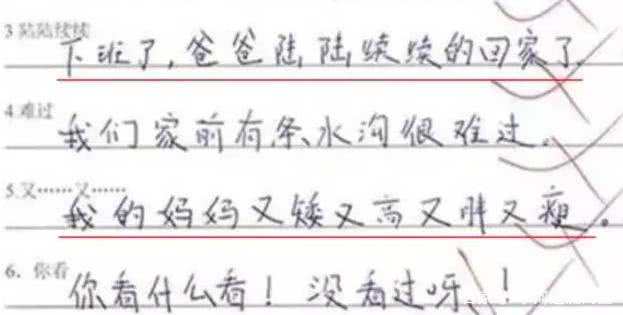 3 陆陆续续
下班了,爸爸陆陆续续的回家了.
4 难过
我们家前有条水沟很难过.
5.又……又……
我的妈妈又矮又高又胖又瘦.
6. 你看
你看什么看!没看过呀!